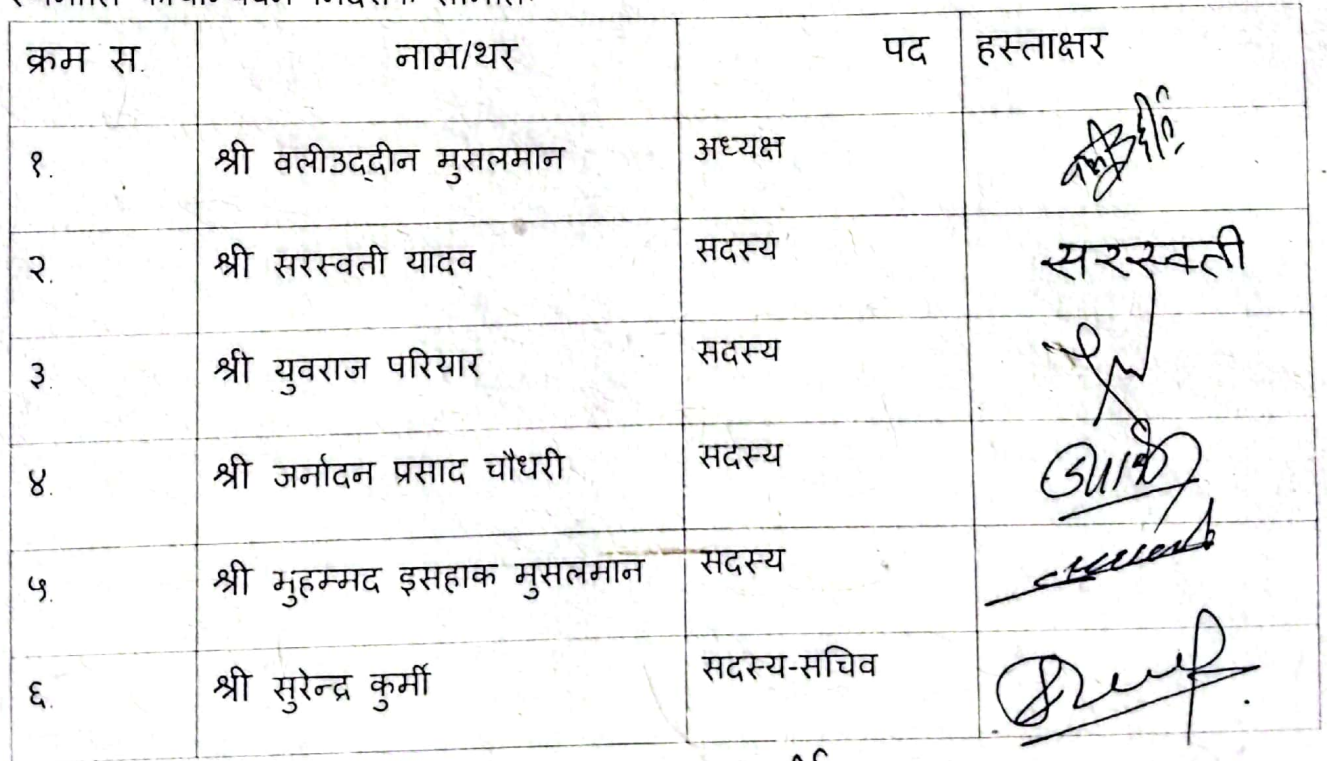 क्रम स. नाम/थर पद हस्ताक्षर
१. श्री वलीउद्दीन मुसलमान अध्यक्ष
२. श्री सरस्वती यादव सदस्य सरस्वती
३. श्री युवराज परियार सदस्य
४. श्री जर्नादन प्रसाद चौधरी सदस्य
५. श्री मुहम्मद इसहाक मुसलमान सदस्य
६. श्री सुरेन्द्र कुर्मी सदस्य-सचिव